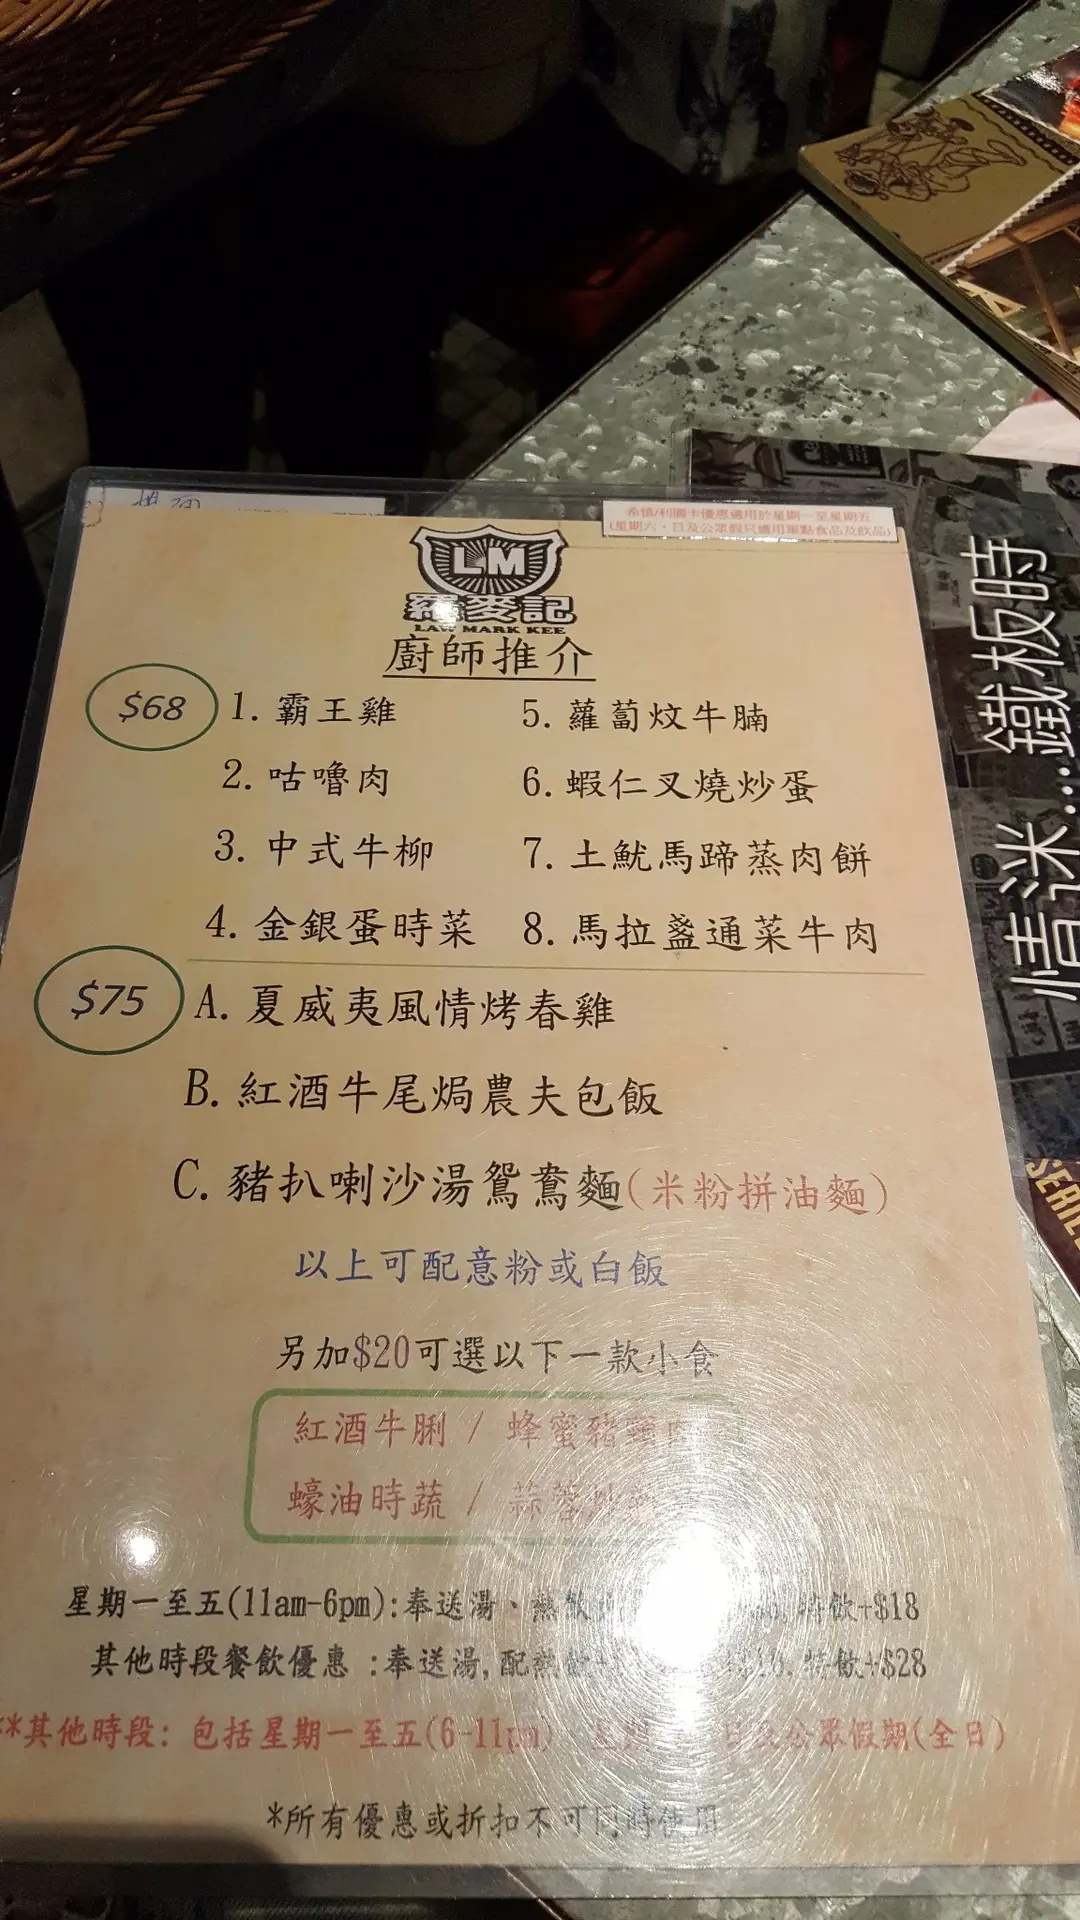 希慎/利園卡優惠適用於星期一至星期五
(星期六、日及公眾假只適用單點食品及飲品)
LM
羅麥記
LAW MARK KEE
廚師推介
$68
1. 霸王雞
5. 蘿蔔炆牛腩
2. 咕嚕肉
6. 蝦仁叉燒炒蛋
3. 中式牛柳
7. 土魷馬蹄蒸肉餅
4. 金銀蛋時菜
8. 馬拉盞通菜牛肉
$75
A. 夏威夷風情烤春雞
B. 紅酒牛尾焗農夫包飯
C. 豬扒喇沙湯鴛鴦麵(米粉拼油麵)
以上可配意粉或白飯
另加$20可選以下一款小食
紅酒牛脷 / 蜂蜜豬頸肉
蠔油時蔬 / 蒜蓉炒
星期一至五(11am-6pm):奉送湯、熱飲 特飲+$18
其他時段餐飲優惠 :奉送湯,配熱飲+ 特飲+$28
**其他時段: 包括星期一至五(6-11pm) 星期 日及公眾假期(全日)
*所有優惠或折扣不可同時使用
情迷...鐵板時
SERIE